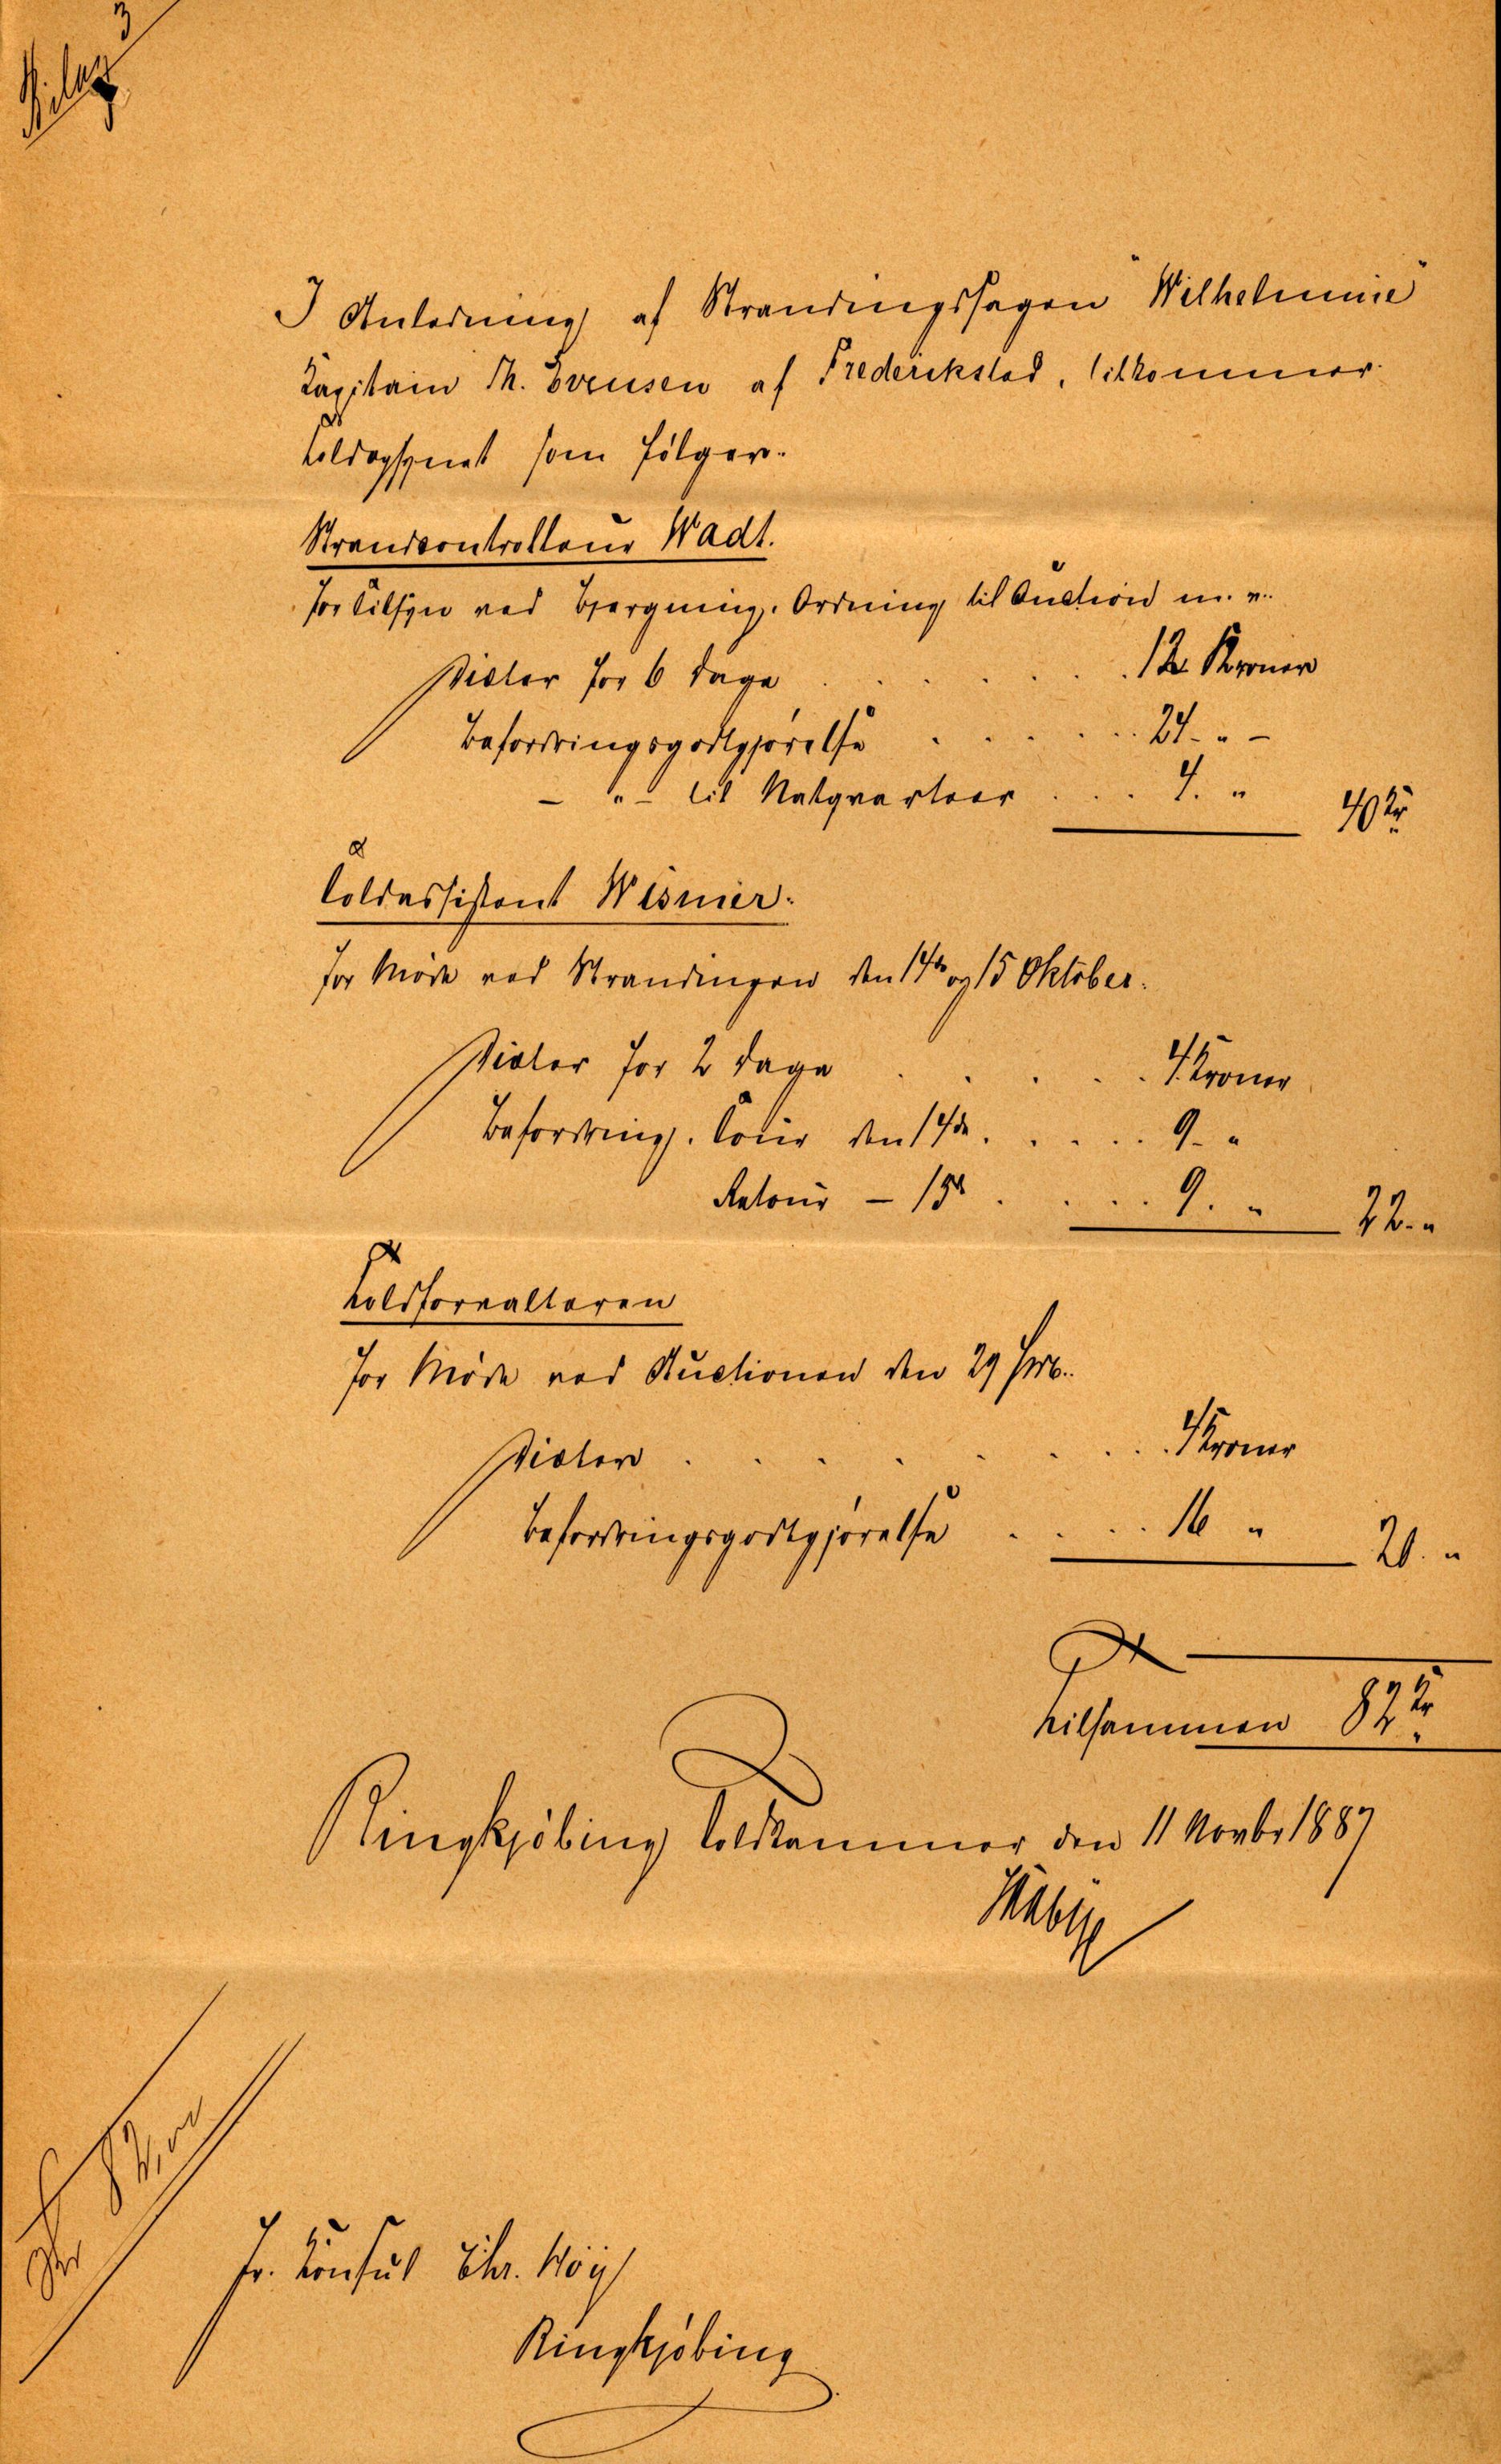 Bilag 3
I Anledning af Strandingssagen "Wilhelmine"
Kapitain Th. Evensen af Frederikstad, tilkommer
Toldopsynet som følger.
Strandcontrolleur Wadt.
for Tilsyn ved Bjergning, Ordning til Auction m. v.
Diæter for 6 Dage . . . . . . 12 Kroner
Befordringsgodtgjørelse . . . . . . 24. " –
– " – til Natqvarteer . . . 4. " 40 Kr
Toldassistent Wismer.
for Møde ved Strandingen den 14de og 15 Oktober.
Diæter for 2 Dage . . . . . 4. Kroner
Befordring. Tour den 14de . . . . . 9. "
Retour – 15de . . . . 9. " 22. "
Toldforvalteren
for Møde ved Auctionen den 29 s.M.
Diæter . . . . . . . 4 Kroner
Befordringsgodtgjørelse . . . . 16 " 20. "
Tilsammen 82 Kr
Ringkjøbing Toldkammer den 11 Novbr 1887
Hr. Konsul Chr. Høy
Ringkjøbing
Kr 82,00